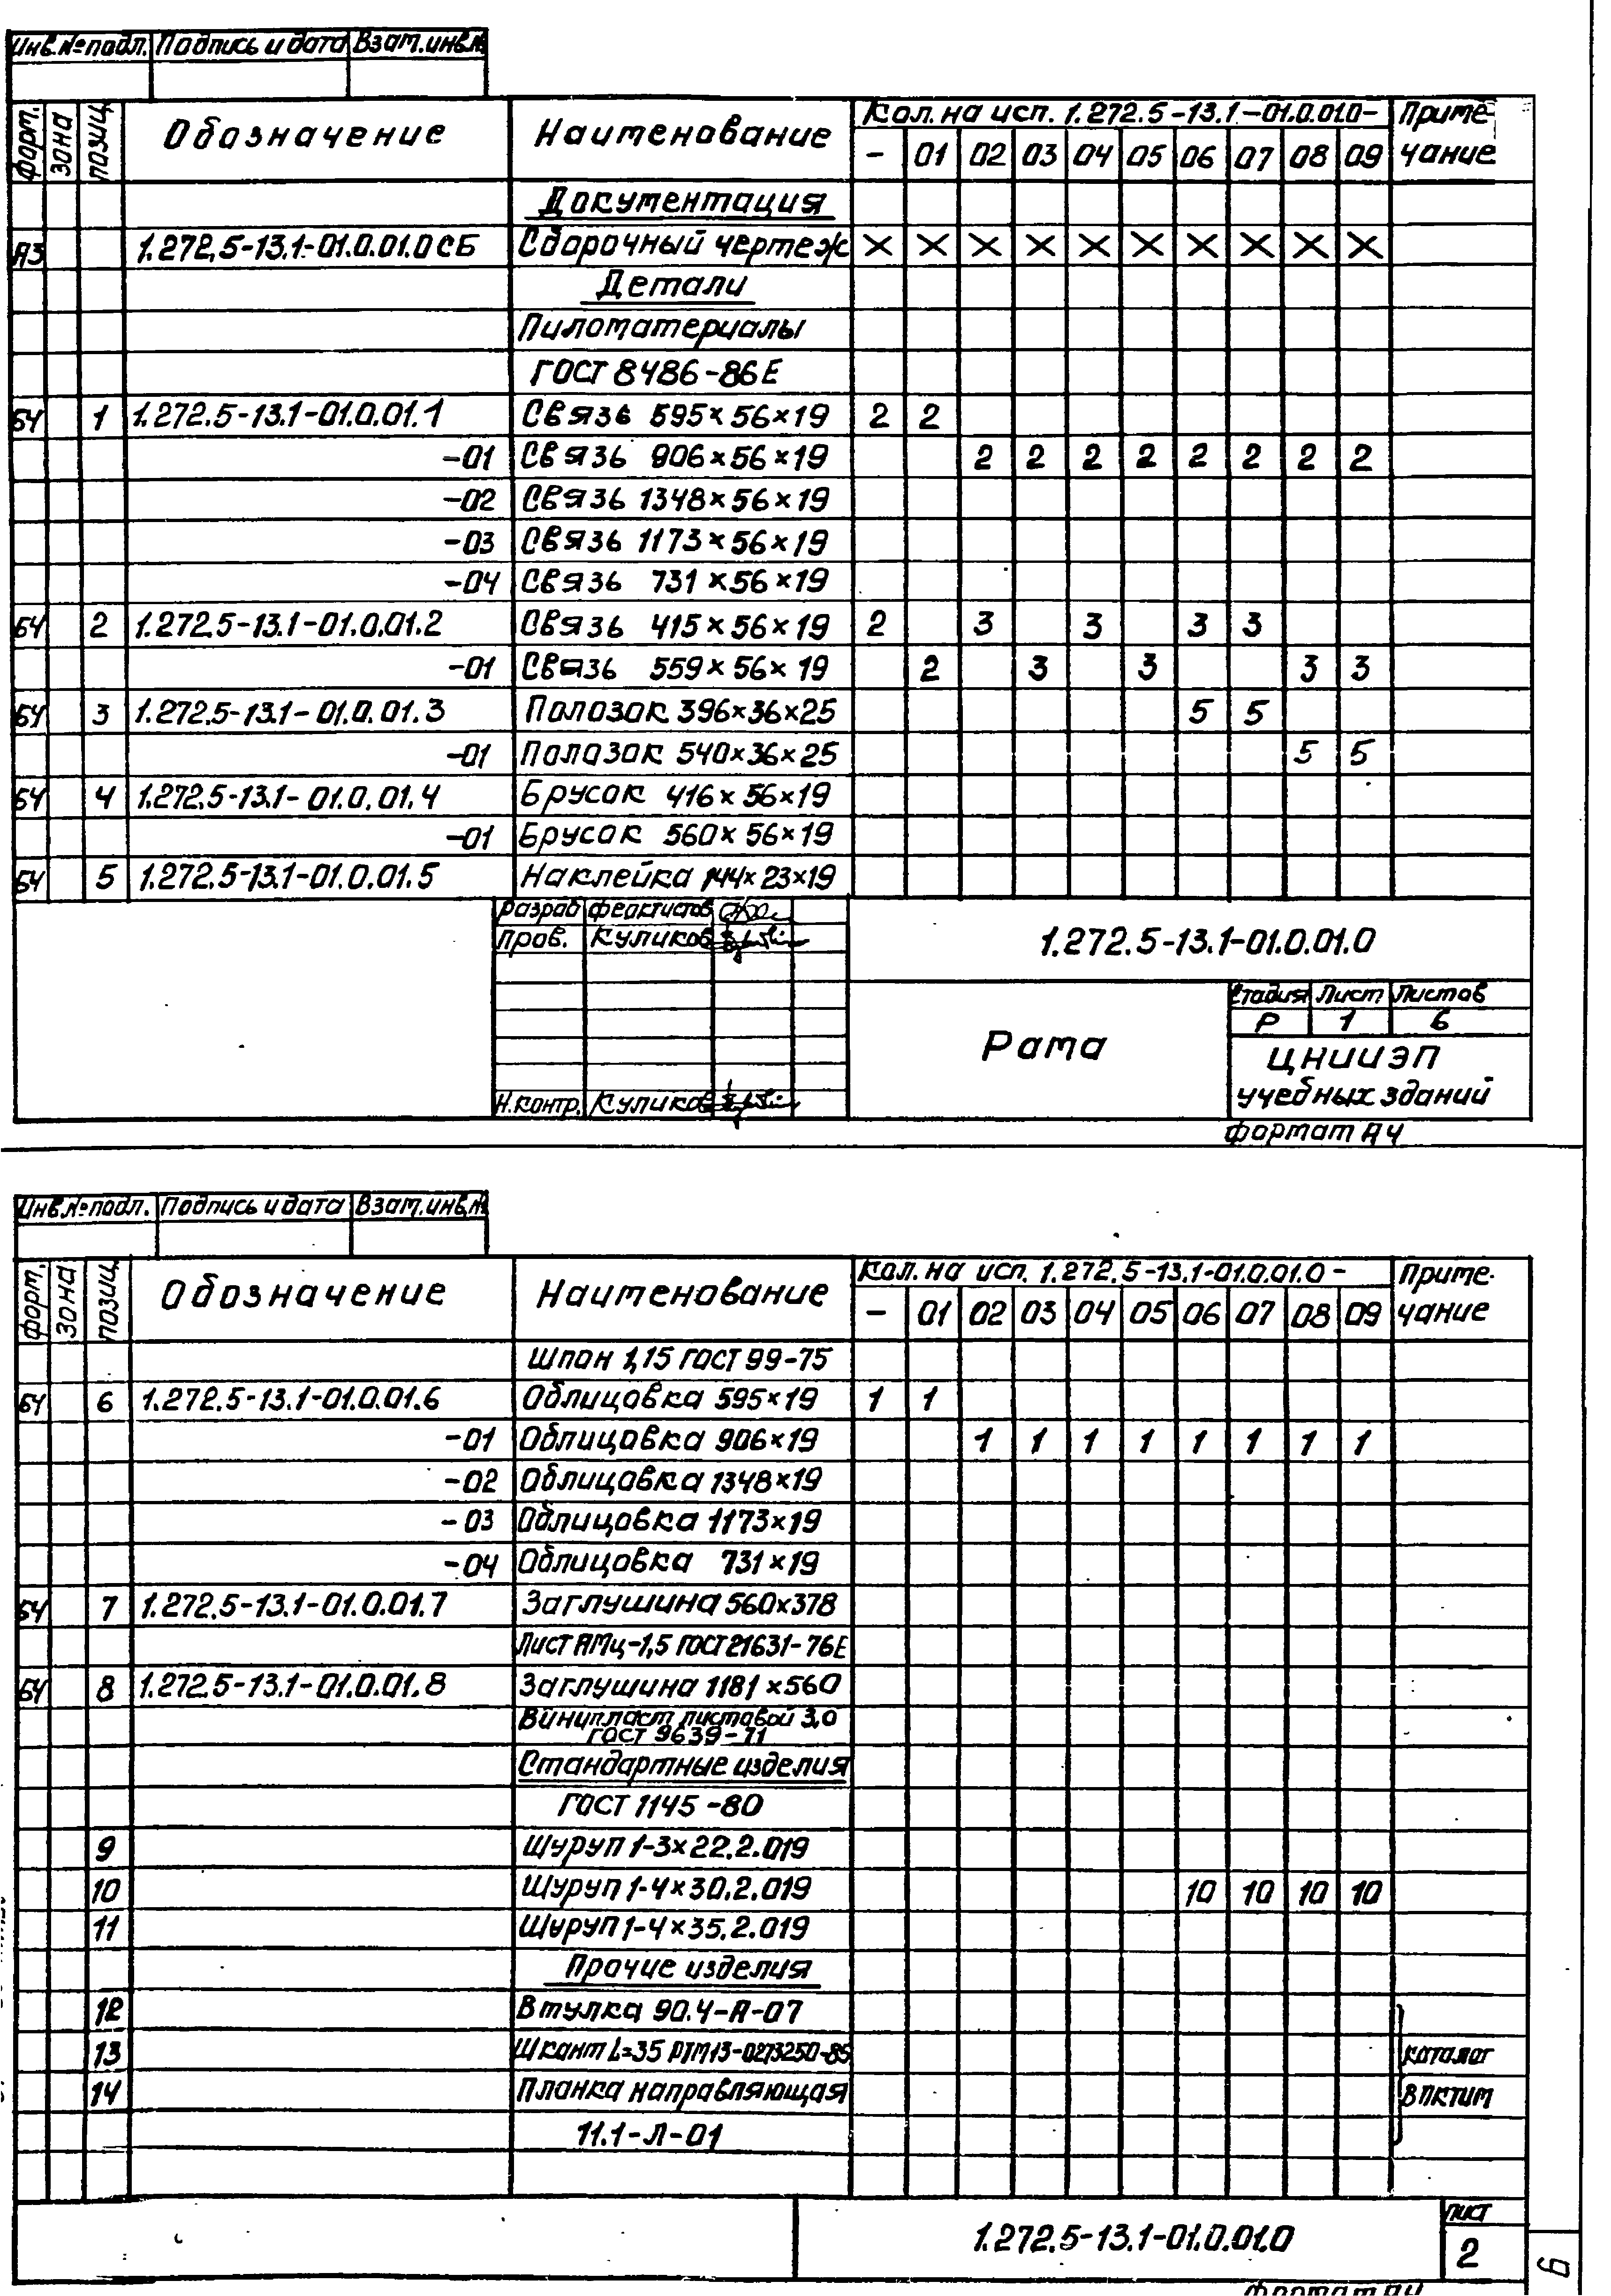 Инв.№подл. Подпись и дата Взам.инв.№
форм. зона позиц. Обозначение Наименование Кол. на исп. 1.272.5-13.1-01.0.01.0- Приме-
- 01 02 03 04 05 06 07 08 09 чание
Документация
А3 1.272.5-13.1-01.0.01.0 СБ Сборочный чертеж X X X X X X X X X X
Детали
Пиломатериалы
ГОСТ 8486-86Е
БЧ 1 1.272.5-13.1-01.0.01.1 Связь 595×56×19 2 2
-01 Связь 906×56×19 2 2 2 2 2 2 2 2
-02 Связь 1348×56×19
-03 Связь 1173×56×19
-04 Связь 731×56×19
БЧ 2 1.272.5-13.1-01.0.01.2 Связь 415×56×19 2 3 3 3 3
-01 Связь 559×56×19 2 3 3 3 3
БЧ 3 1.272.5-13.1-01.0.01.3 Полозок 396×36×25 5 5
-01 Полозок 540×36×25 5 5
БЧ 4 1.272.5-13.1-01.0.01.4 Брусок 416×56×19
-01 Брусок 560×56×19
БЧ 5 1.272.5-13.1-01.0.01.5 Наклейка 144×23×19
Разраб Феактистов
Пров. Куликов
1.272.5-13.1-01.0.01.0
Стадия Лист Листов
Р 1 6
Рама
ЦНИИЭП
учебных зданий
Н.контр. Куликов
формат А4
Инв.№подл. Подпись и дата Взам.инв.№
форм. зона позиц. Обозначение Наименование Кол. на исп. 1.272.5-13.1-01.0.01.0- Приме-
- 01 02 03 04 05 06 07 08 09 чание
Шпон 1,15 ГОСТ 99-75
БЧ 6 1.272.5-13.1-01.0.01.6 Облицовка 595×19 1 1
-01 Облицовка 906×19 1 1 1 1 1 1 1 1
-02 Облицовка 1348×19
-03 Облицовка 1173×19
-04 Облицовка 731×19
БЧ 7 1.272.5-13.1-01.0.01.7 Заглушина 560×378
Лист АМц-1,5 ГОСТ 21631-76Е
БЧ 8 1.272.5-13.1-01.0.01.8 Заглушина 1181×560
Винипласт листовой 3,0
ГОСТ 9639-71
Стандартные изделия
ГОСТ 1145-80
9 Шуруп 1-3×22.2.019
10 Шуруп 1-4×30.2.019 10 10 10 10
11 Шуруп 1-4×35.2.019
Прочие изделия
12 Втулка 90.4-А-07
13 Шкант L=35 РТМ13-0273250-85 каталог
14 Планка направляющая ВПКТИМ
11.1-Л-01
1.272.5-13.1-01.0.01.0
лист
2
6
формат А4